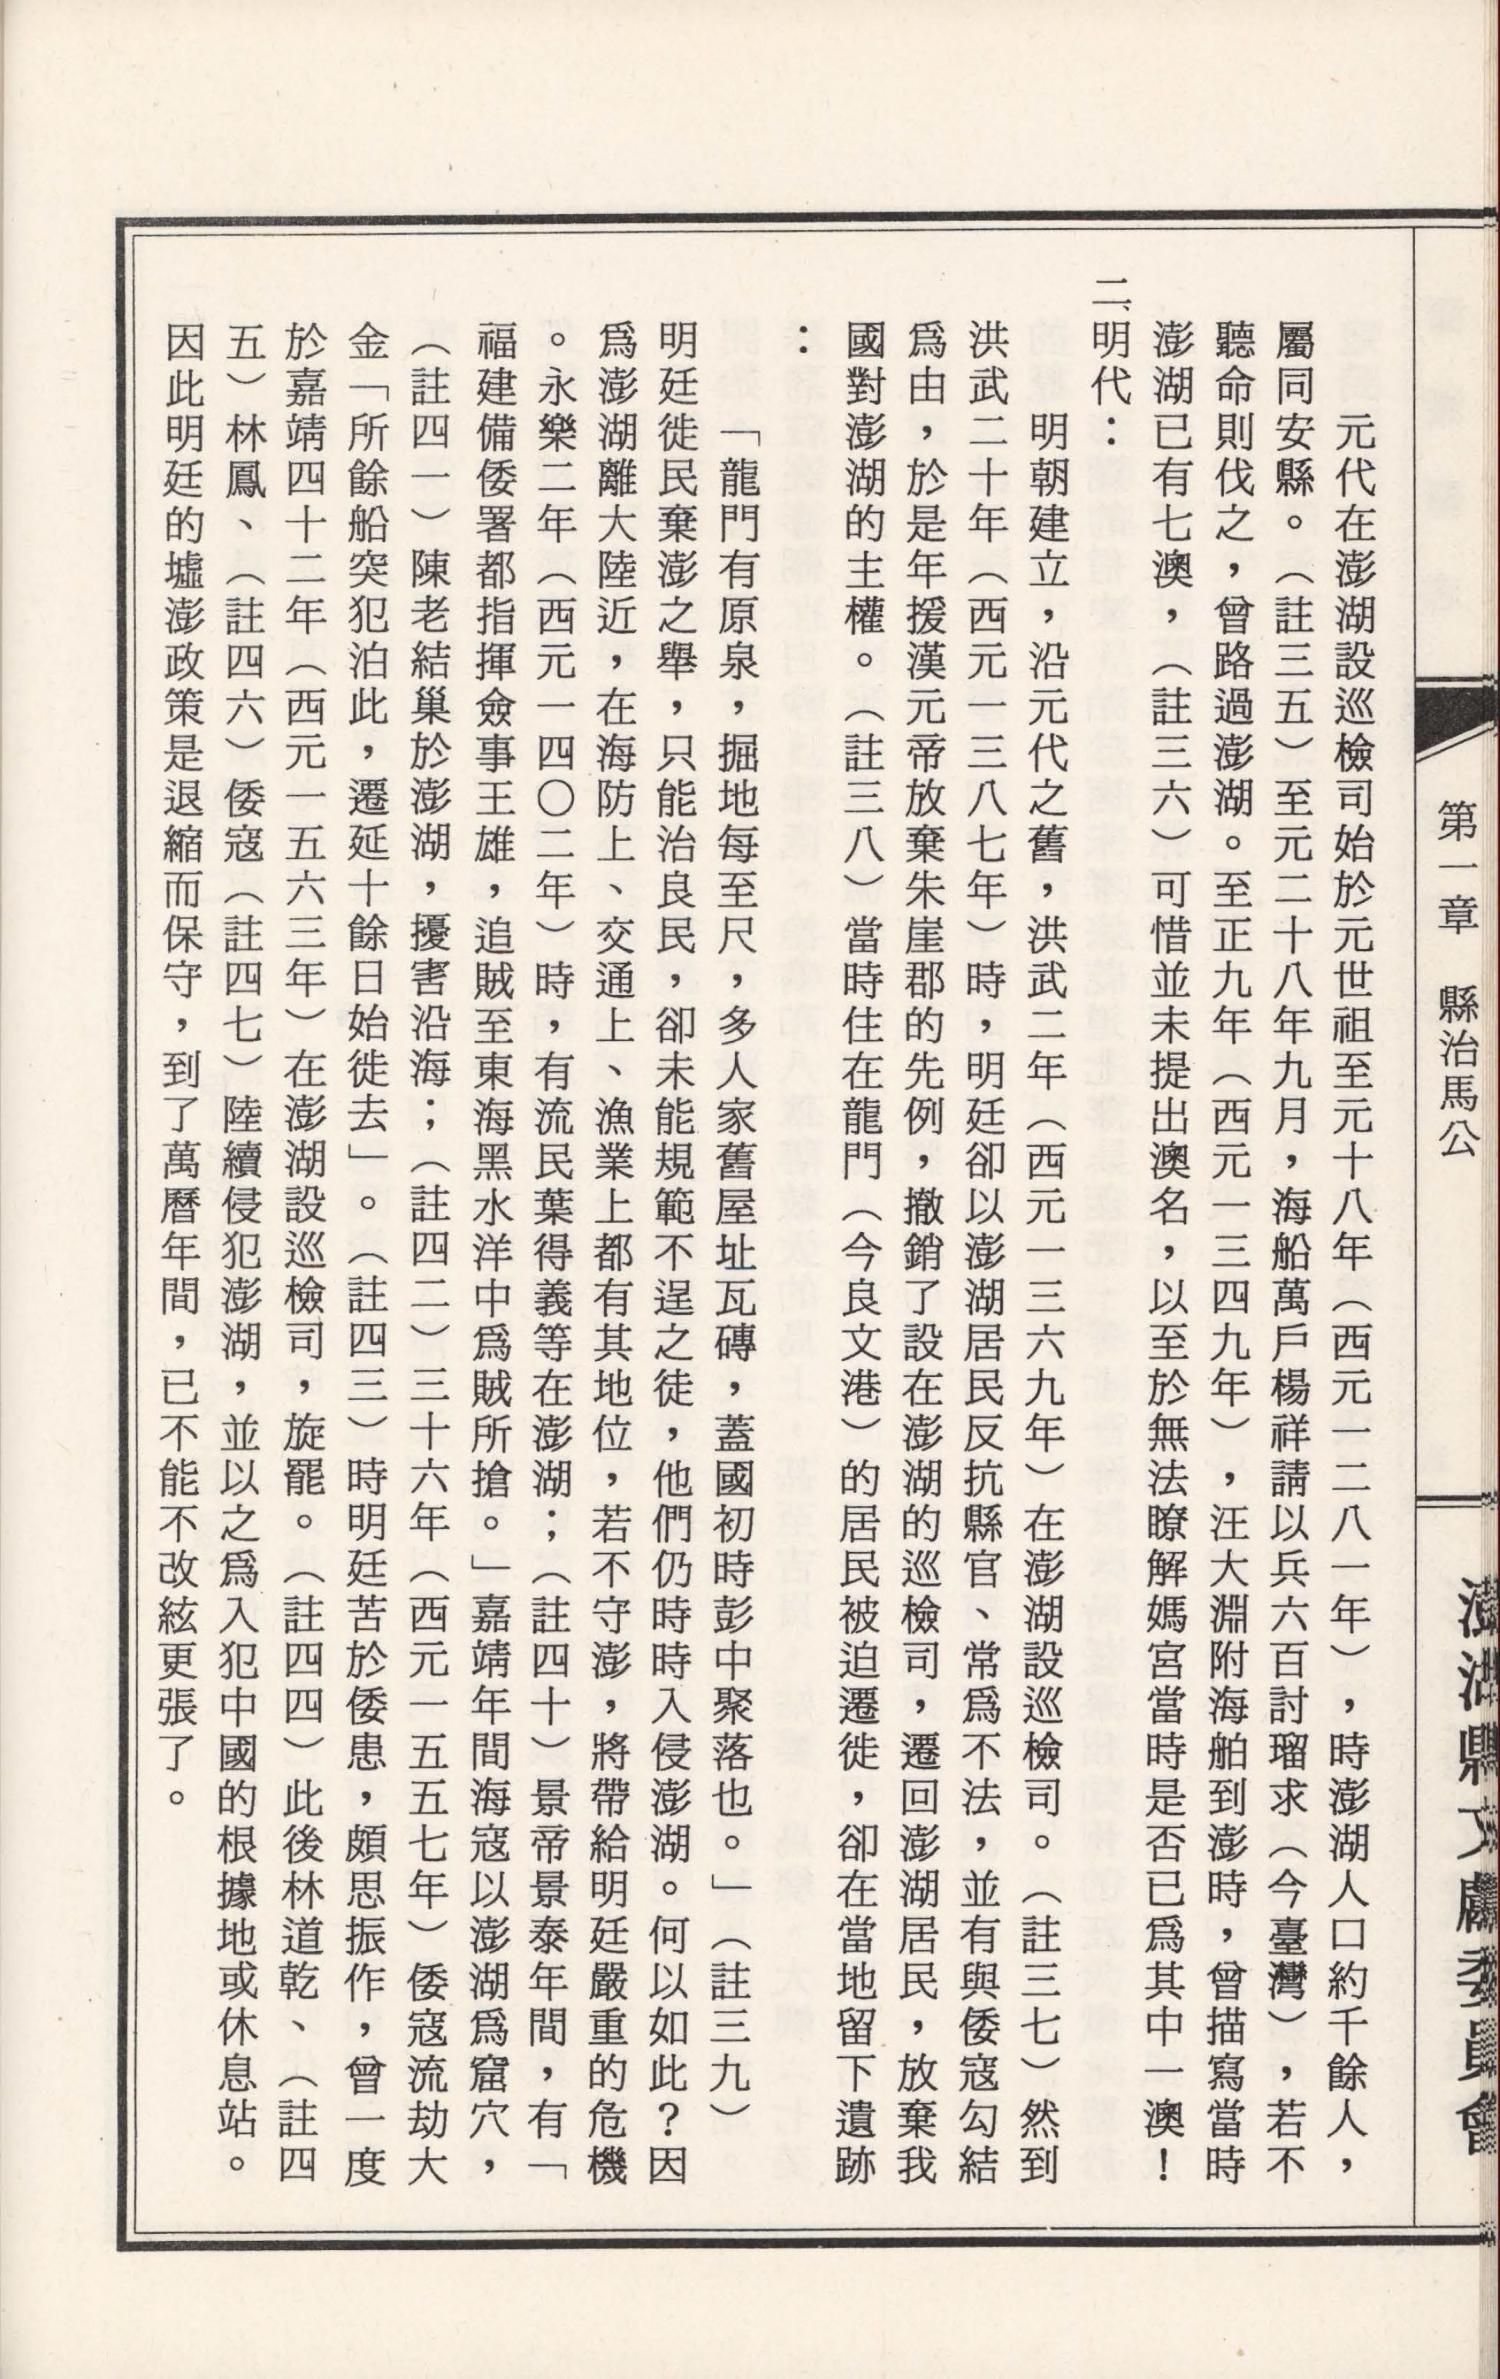 第一章　縣治馬公
澎湖縣文獻委員會
元代在澎湖設巡檢司始於元世祖至元十八年（西元一二八一年），時澎湖人口約千餘人，
屬同安縣。（註三五）至元二十八年九月，海船萬戶楊祥請以兵六百討瑠求（今臺灣），若不
聽命則伐之，曾路過澎湖。至正九年（西元一三四九年），汪大淵附海舶到澎時，曾描寫當時
澎湖已有七澳，（註三六）可惜並未提出澳名，以至於無法瞭解媽宮當時是否已爲其中一澳！
二、明代：
明朝建立，沿元代之舊，洪武二年（西元一三六九年）在澎湖設巡檢司。（註三七）然到
洪武二十年（西元一三八七年）時，明廷卻以澎湖居民反抗縣官、常爲不法，並有與倭寇勾結
爲由，於是年援漢元帝放棄朱崖郡的先例，撤銷了設在澎湖的巡檢司，遷回澎湖居民，放棄我
國對澎湖的主權。（註三八）當時住在龍門（今良文港）的居民被迫遷徙，卻在當地留下遺跡
：
「龍門有原泉，掘地每至尺，多人家舊屋址瓦磚，蓋國初時彭中聚落也。」（註三九）
明廷徙民棄澎之舉，只能治良民，卻未能規範不逞之徒，他們仍時時入侵澎湖。何以如此？因
爲澎湖離大陸近，在海防上、交通上、漁業上都有其地位，若不守澎，將帶給明廷嚴重的危機
。永樂二年（西元一四〇二年）時，有流民葉得義等在澎湖；（註四十）景帝景泰年間，有「
福建備倭署都指揮僉事王雄，追賊至東海黑水洋中爲賊所搶。」嘉靖年間海寇以澎湖爲窟穴，
（註四一）陳老結巢於澎湖，擾害沿海；（註四二）三十六年（西元一五五七年）倭寇流劫大
金「所餘船突犯泊此，遷延十餘日始徙去」。（註四三）時明廷苦於倭患，頗思振作，曾一度
於嘉靖四十二年（西元一五六三年）在澎湖設巡檢司，旋罷。（註四四）此後林道乾、（註四
五）林鳳、（註四六）倭寇（註四七）陸續侵犯澎湖，並以之爲入犯中國的根據地或休息站。
因此明廷的墟澎政策是退縮而保守，到了萬曆年間，已不能不改絃更張了。